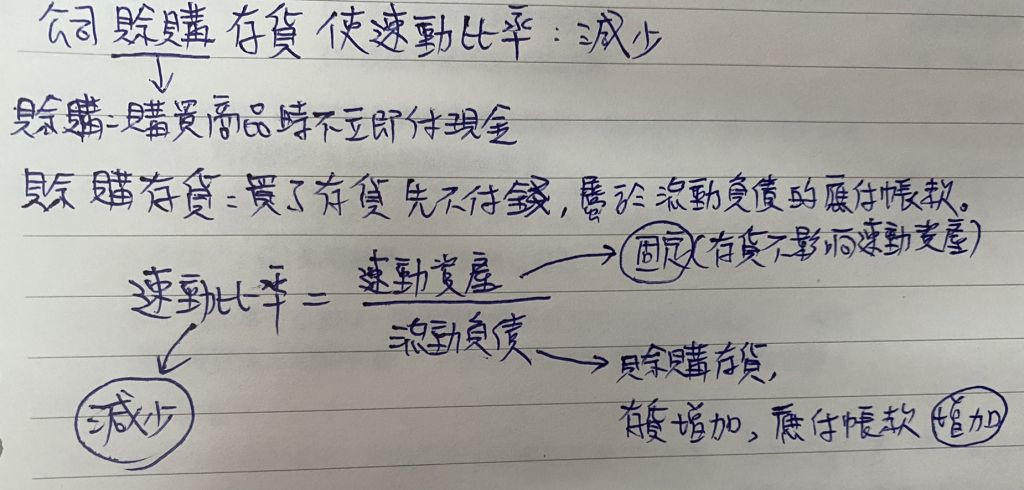 公司賒購存貨使速動比率:減少
賒購:購買商品時不立即付現金
賒購存貨:買了存貨先不付錢,屬於流動負債的應付帳款。
速動比率=速動資產
流動負債
固定(存貨不影响速動資產)
賒購存貨,
存貨增加,應付帳款增加
減少